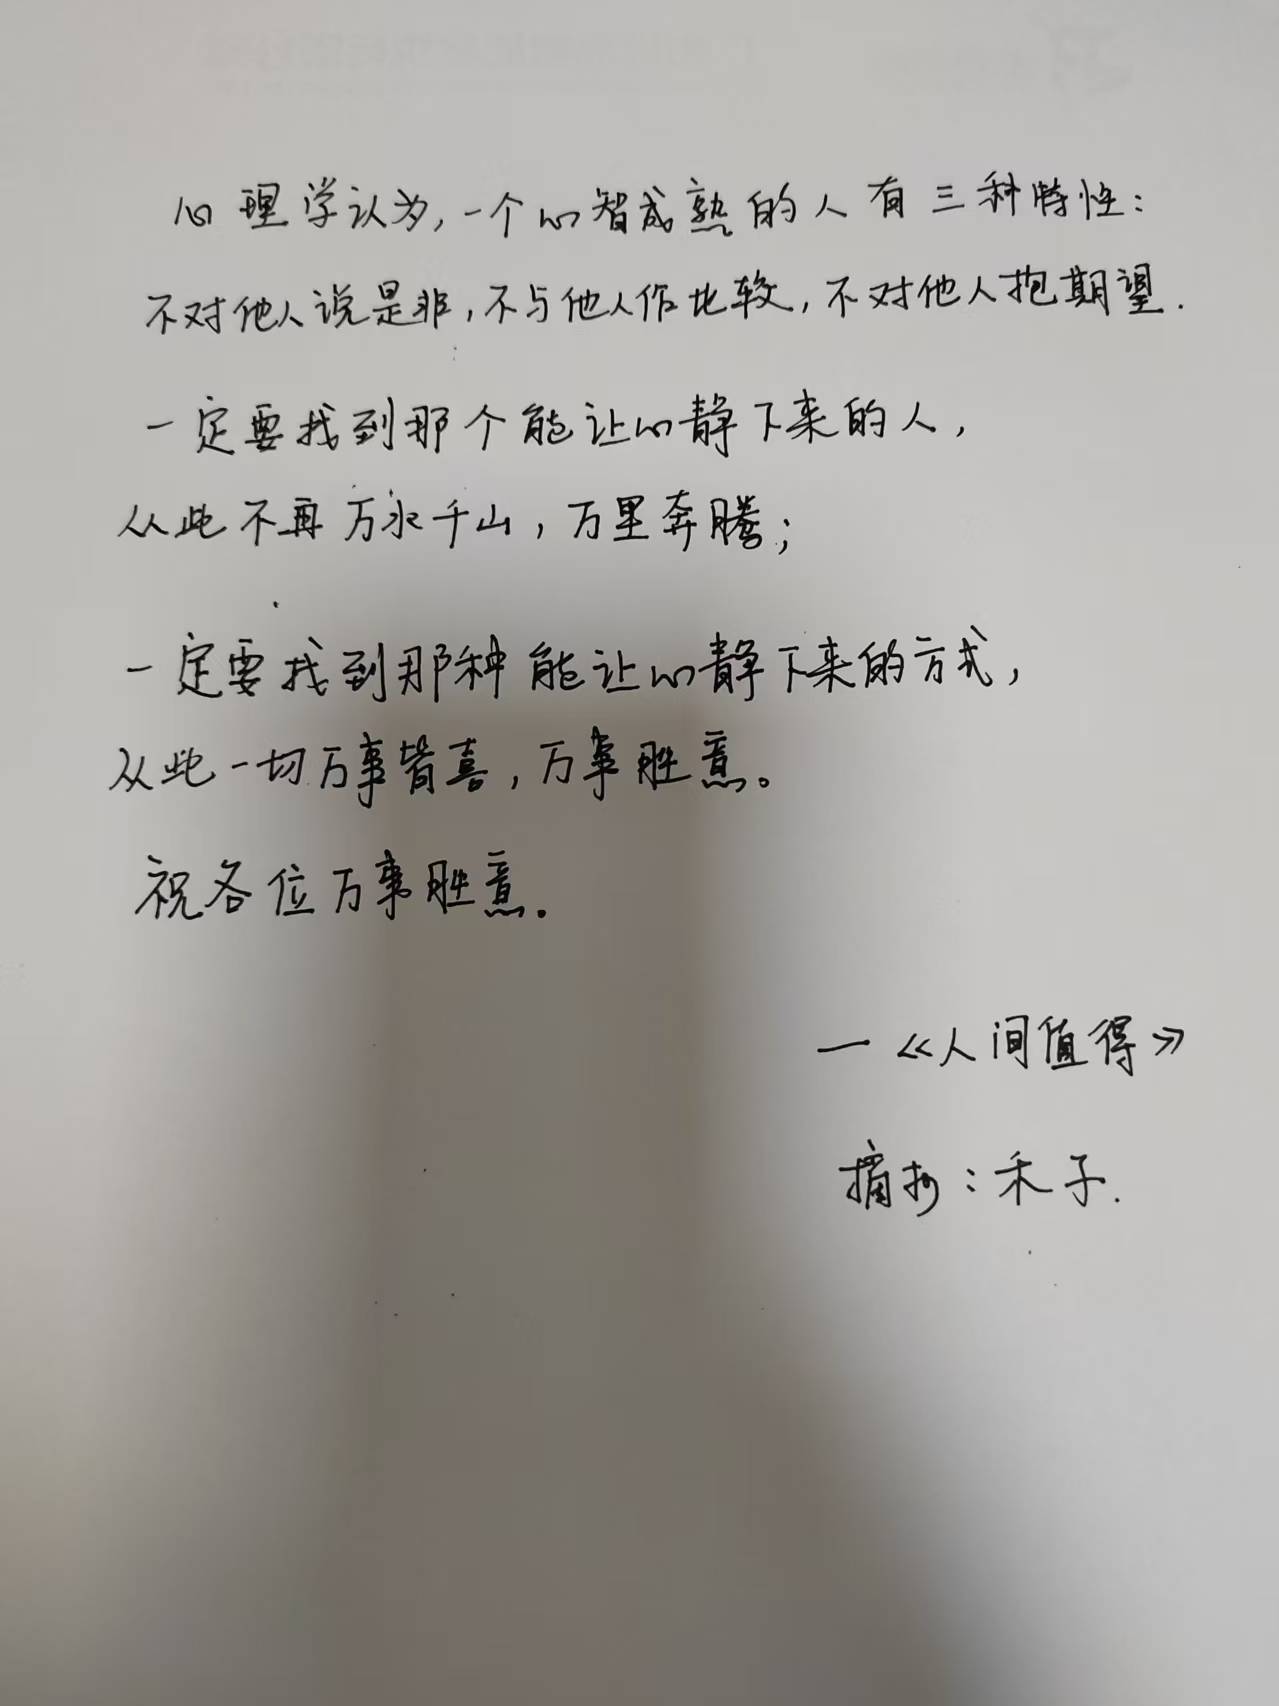 心理学认为,一个心智成熟的人有三种特性:
不对他人说是非,不与他人作比较,不对他人抱期望.
一定要找到那个能让心静下来的人,
从此不再万水千山,万里奔腾;
一定要找到那种能让心静下来的方式,
从此一切万事皆喜,万事胜意。
祝各位万事胜意.
—《人间值得》
摘抄:禾子.